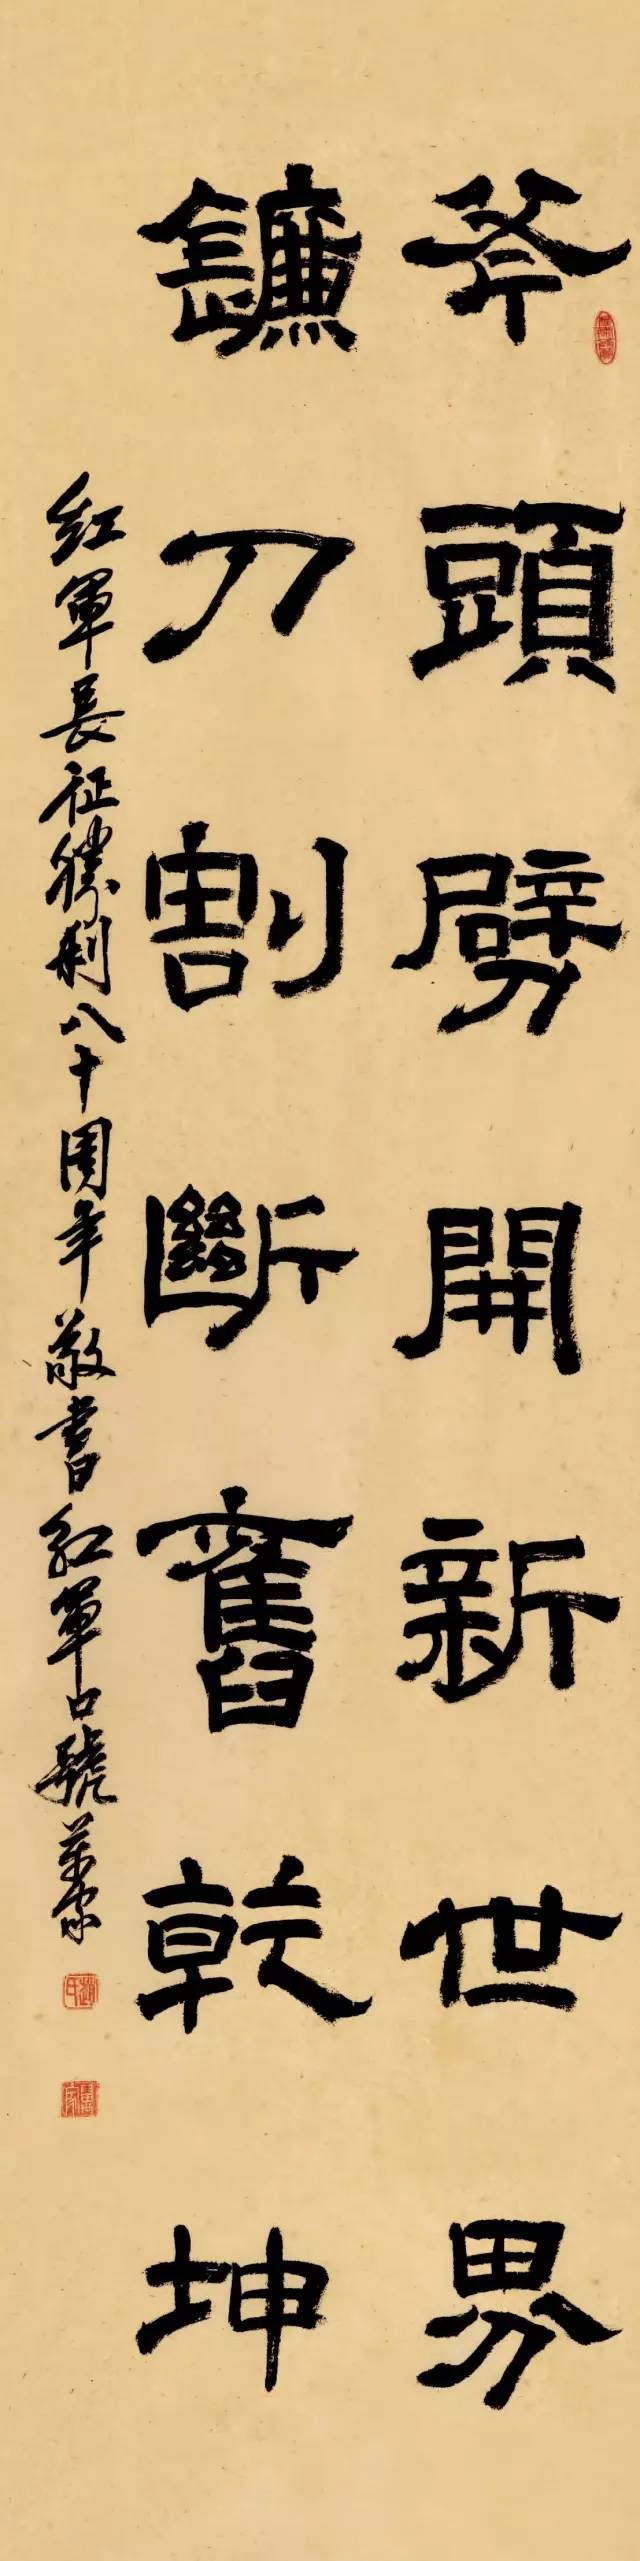 斧頭劈開新世界
鐮刀割斷舊乾坤
紅軍長征勝利八十周年敬書紅軍口號萬家
趙氏
萬家